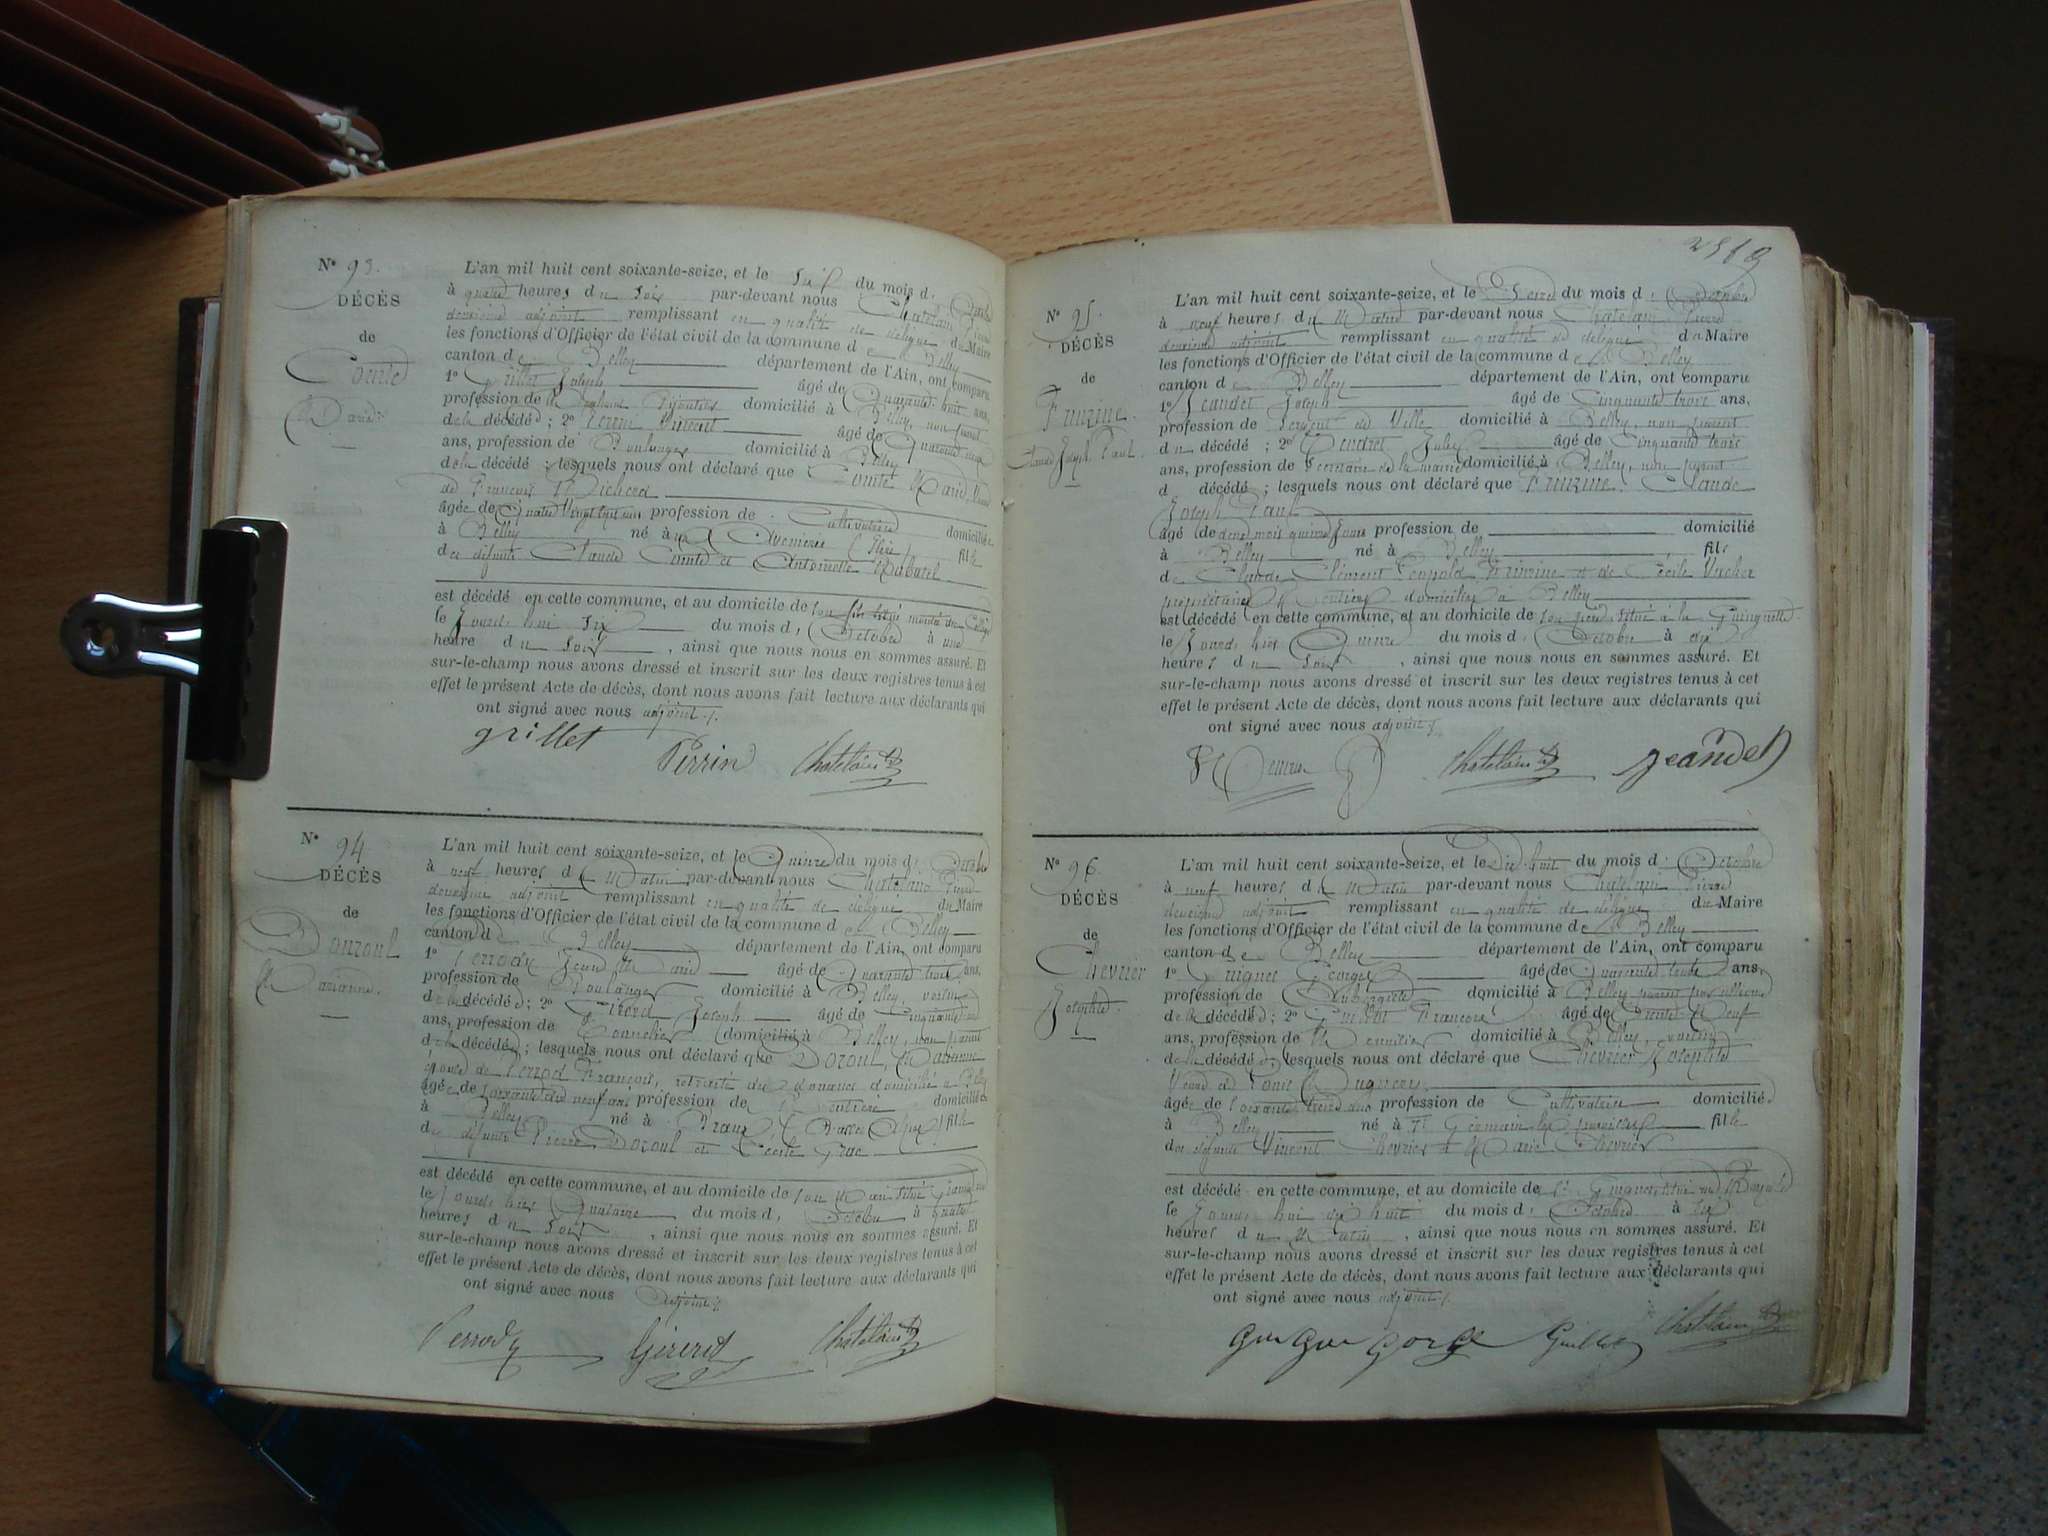 N° 93.
DÉCÈS
de
Comte
Marie
L'an mil huit cent soixante-seize, et le six du mois d'Octobre
à quatre heures du Soir par-devant nous Chatelain Pierre
deuxième adjoint remplissant en qualité de délégué du Maire
les fonctions d'Officier de l'état civil de la commune de Belley
canton de Belley département de l'Ain, ont comparu
1° Grillet Joseph âgé de Quarante huit ans,
profession de Bijoutier domicilié à Belley, non parent
de la décédée ; 2° Perrin Vincent âgé de Quarante
ans, profession de Boulanger domicilié à Belley
de la décédée ; lesquels nous ont déclaré que Comte Marie, Veuve
de François Michard
âgée de Quatre Vingt profession de Cultivatrice domiciliée
à Belley né à Avenières (Isère) fille
des défunts Claude Comte et Antoinette
est décédé en cette commune, et au domicile de son
le Jourd'hui six du mois d'Octobre à une
heure du Soir, ainsi que nous nous en sommes assuré. Et
sur-le-champ nous avons dressé et inscrit sur les deux registres tenus à cet
effet le présent Acte de décès, dont nous avons fait lecture aux déclarants qui
ont signé avec nous adjoint ./.
grillet Perrin Chatelain
N° 94
DÉCÈS
de
Douzoul
Marianne.
L'an mil huit cent soixante-seize, et le Quinze du mois d'Octobre
à neuf heures du Matin par-devant nous Chatelain Pierre
deuxième adjoint remplissant en qualité de délégué du Maire
les fonctions d'Officier de l'état civil de la commune de Belley
canton de Belley département de l'Ain, ont comparu
1° Perrody Jean Marie âgé de Quarante trois ans,
profession de Boulanger domicilié à Belley, voisin
de la décédée ; 2° Girerd Joseph âgé de Cinquante
ans, profession de Tonnelier domicilié à Belley, non parent
de la décédée ; lesquels nous ont déclaré que Dozoul, Marianne
épouse de Perrod François, retraité des douanes domicilié à Belley
âgée de soixante dix neuf ans profession de Rentière domiciliée
à Belley né à (Basses Alpes) fille
des défunts Pierre Dozoul et Cécile
est décédé en cette commune, et au domicile de son Mari situé
le Jourd'hier Quatorze du mois d'Octobre à quatre
heures du Soir, ainsi que nous nous en sommes assuré. Et
sur-le-champ nous avons dressé et inscrit sur les deux registres tenus à cet
effet le présent Acte de décès, dont nous avons fait lecture aux déclarants qui
ont signé avec nous Adjoint ./.
Perrody Girerd Chatelain
N° 95.
DÉCÈS
de
Fruizine
Claude Joseph Paul
L'an mil huit cent soixante-seize, et le Seize du mois d'Octobre
à neuf heures du Matin par-devant nous Chatelain Pierre
deuxième adjoint remplissant en qualité de délégué du Maire
les fonctions d'Officier de l'état civil de la commune de Belley
canton de Belley département de l'Ain, ont comparu
1° Jeandet Joseph âgé de Cinquante trois ans,
profession de Sergent de Ville domicilié à Belley, non parent
du décédé ; 2° Jules âgé de Cinquante trois
ans, profession de Secrétaire de la mairie domicilié à Belley, non parent
d décédé ; lesquels nous ont déclaré que Fruizine Claude
Joseph Paul
âgé de deux mois quinze Jours profession de domicilié
à Belley né à Belley fils
de Claude Clément Léopold Fruizine et de Cécile Vacher
propriétaires Rentiers domiciliés à Belley
est décédé en cette commune, et au domicile de son père situé à la Guinguette
le Jourd'hier Quinze du mois d'Octobre à dix
heures du Soir, ainsi que nous nous en sommes assuré. Et
sur-le-champ nous avons dressé et inscrit sur les deux registres tenus à cet
effet le présent Acte de décès, dont nous avons fait lecture aux déclarants qui
ont signé avec nous adjoint ./.
Chatelain Jeandet
N° 96.
DÉCÈS
de
Chevrier
Josephte
L'an mil huit cent soixante-seize, et le Dix huit du mois d'Octobre
à neuf heures du Matin par-devant nous Chatelain Pierre
deuxième adjoint remplissant en qualité de délégué du Maire
les fonctions d'Officier de l'état civil de la commune de Belley
canton de Belley département de l'Ain, ont comparu
1° Georges âgé de Quarante ans,
profession de Aubergiste domicilié à Belley parent par alliance
de la décédée ; 2° François âgé de Neuf
ans, profession de domicilié à Belley, voisin
de la décédée ; lesquels nous ont déclaré que Chevrier Josephte
Veuve de Louis
âgée de soixante treize ans profession de Cultivatrice domiciliée
à Belley né à St Germain les paroisses fille
des défunts Vincent Chevrier et Marie Chevrier
est décédé en cette commune, et au domicile de
le Jourd'hui dix huit du mois d'Octobre à six
heures du Matin, ainsi que nous nous en sommes assuré. Et
sur-le-champ nous avons dressé et inscrit sur les deux registres tenus à cet
effet le présent Acte de décès, dont nous avons fait lecture aux déclarants qui
ont signé avec nous adjoint ./.
gorge Chatelain